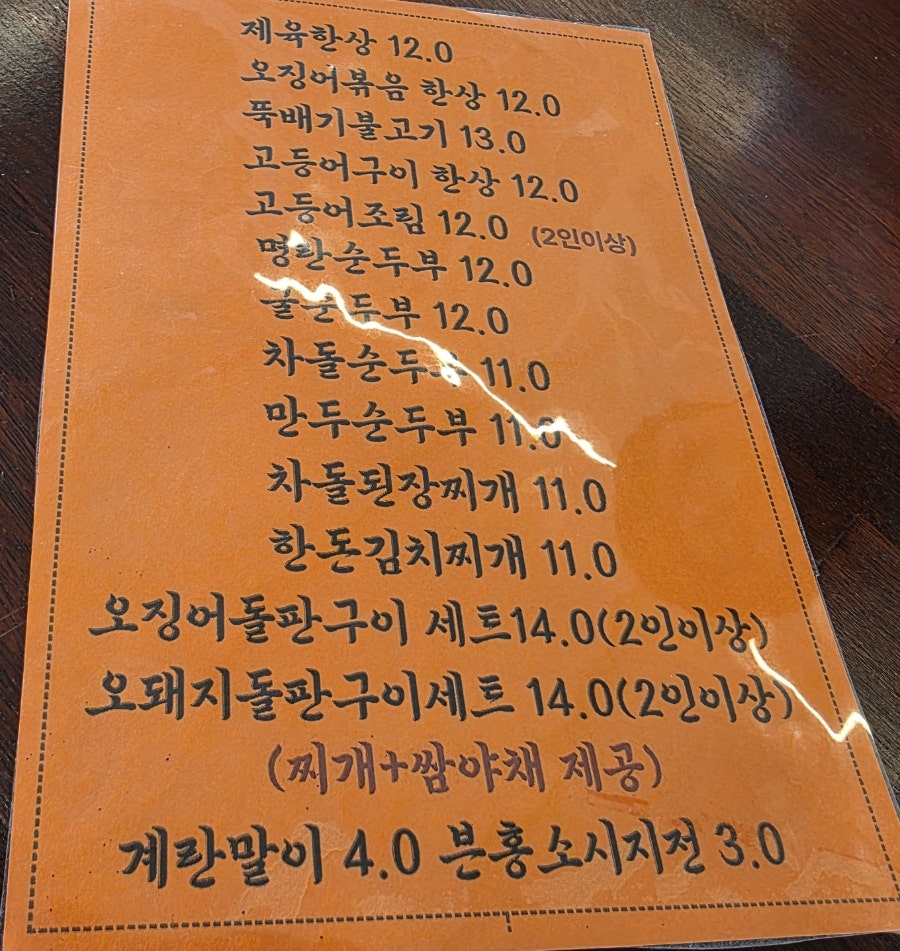 제육한상 12.0
오징어볶음 한상 12.0
뚝배기불고기 13.0
고등어구이 한상 12.0
고등어조림 12.0 (2인이상)
명란순두부 12.0
굴순두부 12.0
차돌순두부 11.0
만두순두부 11.0
차돌된장찌개 11.0
한돈김치찌개 11.0
오징어돌판구이 세트14.0(2인이상)
오돼지돌판구이세트 14.0(2인이상)
(찌개+쌈야채 제공)
계란말이 4.0 분홍소시지전 3.0